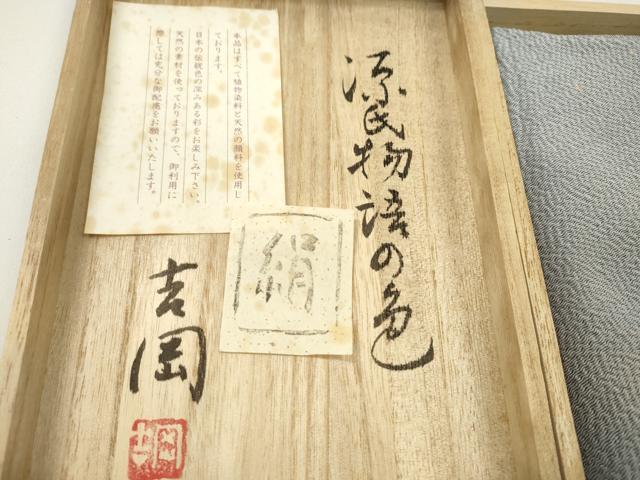 源氏物語の色
本品はすべて植物染料と天然の顔料を使用し
ております。
日本の伝統色の深みある彩をお楽しみ下さい。
天然の素材を使っておりますので、御利用に
際しては充分な御配慮をお願いいたします。
絹
吉岡
吉岡